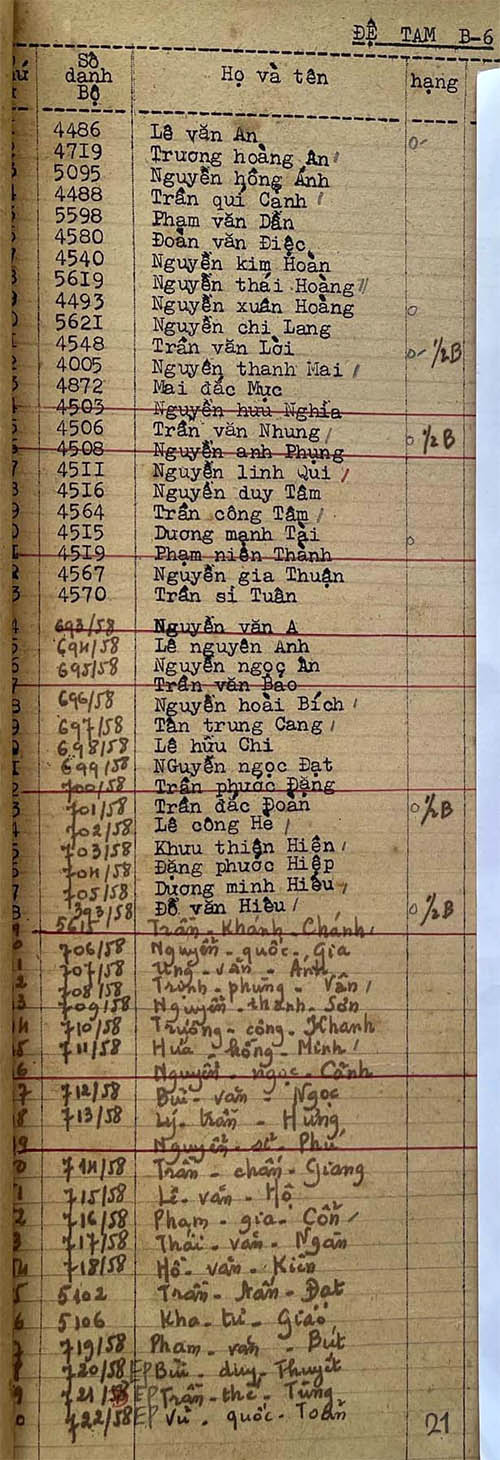 ĐỆ TAM B-6
Số danh Bộ Họ và tên hạng
4486 Lê văn An
4719 Trương hoàng Ân
5095 Nguyễn hồng Ánh
4488 Trần quí Cảnh
5598 Phạm văn Dần
4580 Đoàn văn Điệc
4540 Nguyễn kim Hoàn
5619 Nguyễn thái Hoàng
4493 Nguyễn xuân Hoàng
5621 Nguyễn chi Lang
4548 Trần văn Lời 1/2B
4005 Nguyễn thanh Mai
4872 Mai đắc Mục
4503 Nguyễn hưu Nghĩa
4506 Trần văn Nhung 1/2B
4508 Nguyễn anh Phụng
4511 Nguyễn linh Qui
4516 Nguyễn duy Tâm
4564 Trần công Tâm
4515 Dương mạnh Tài
4519 Phạm niên Thành
4567 Nguyễn gia Thuận
4570 Trần si Tuân
693/58 Nguyễn văn A
694/58 Lê nguyên Anh
695/58 Nguyễn ngọc Ân
Trần văn Bao
696/58 Nguyễn hoài Bích
697/58 Tân trung Cang
698/58 Lê hữu Chi
699/58 NGuyễn ngọc Đạt
700/58 Trần phước Đặng
701/58 Trần đắc Đoàn 1/2B
702/58 Lê công Hè
703/58 Khưu thiện Hiền
704/58 Đặng phước Hiệp
705/58 Dương minh Hiếu
393/58 Đỗ văn Hiếu 1/2B
5615 Trần - Khánh - Chánh
706/58 Nguyễn - quốc - Gia
707/58 Ưng - văn - Anh
708/58 Trịnh - phụng - Vân
709/58 Nguyễn - thanh - Sơn
710/58 Trương - công - Khanh
711/58 Hứa - hồng - Minh
Nguyễn - ngọc - Cảnh
712/58 Bùi - văn - Ngọc
713/58 Lý - trần - Hùng
Nguyễn - sĩ - Phú
714/58 Trần - chấn - Giang
715/58 Lê - văn - Hộ
716/58 Phạm - gia - Cổn
717/58 Thái - văn - Ngàn
718/58 Hồ - văn - Kiên
5102 Trần - tấn - Đạt
5106 Kha - tư - Giáo
719/58 Phạm - văn - Bút
720/58 EP Bùi - duy - Thuyết
721/58 EP Trần - thế - Tùng
722/58 EP Vũ - quốc - Toản 21